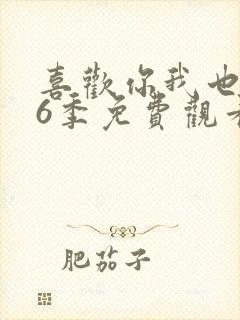 喜歡你我也
6季免費觀看
肥茄子